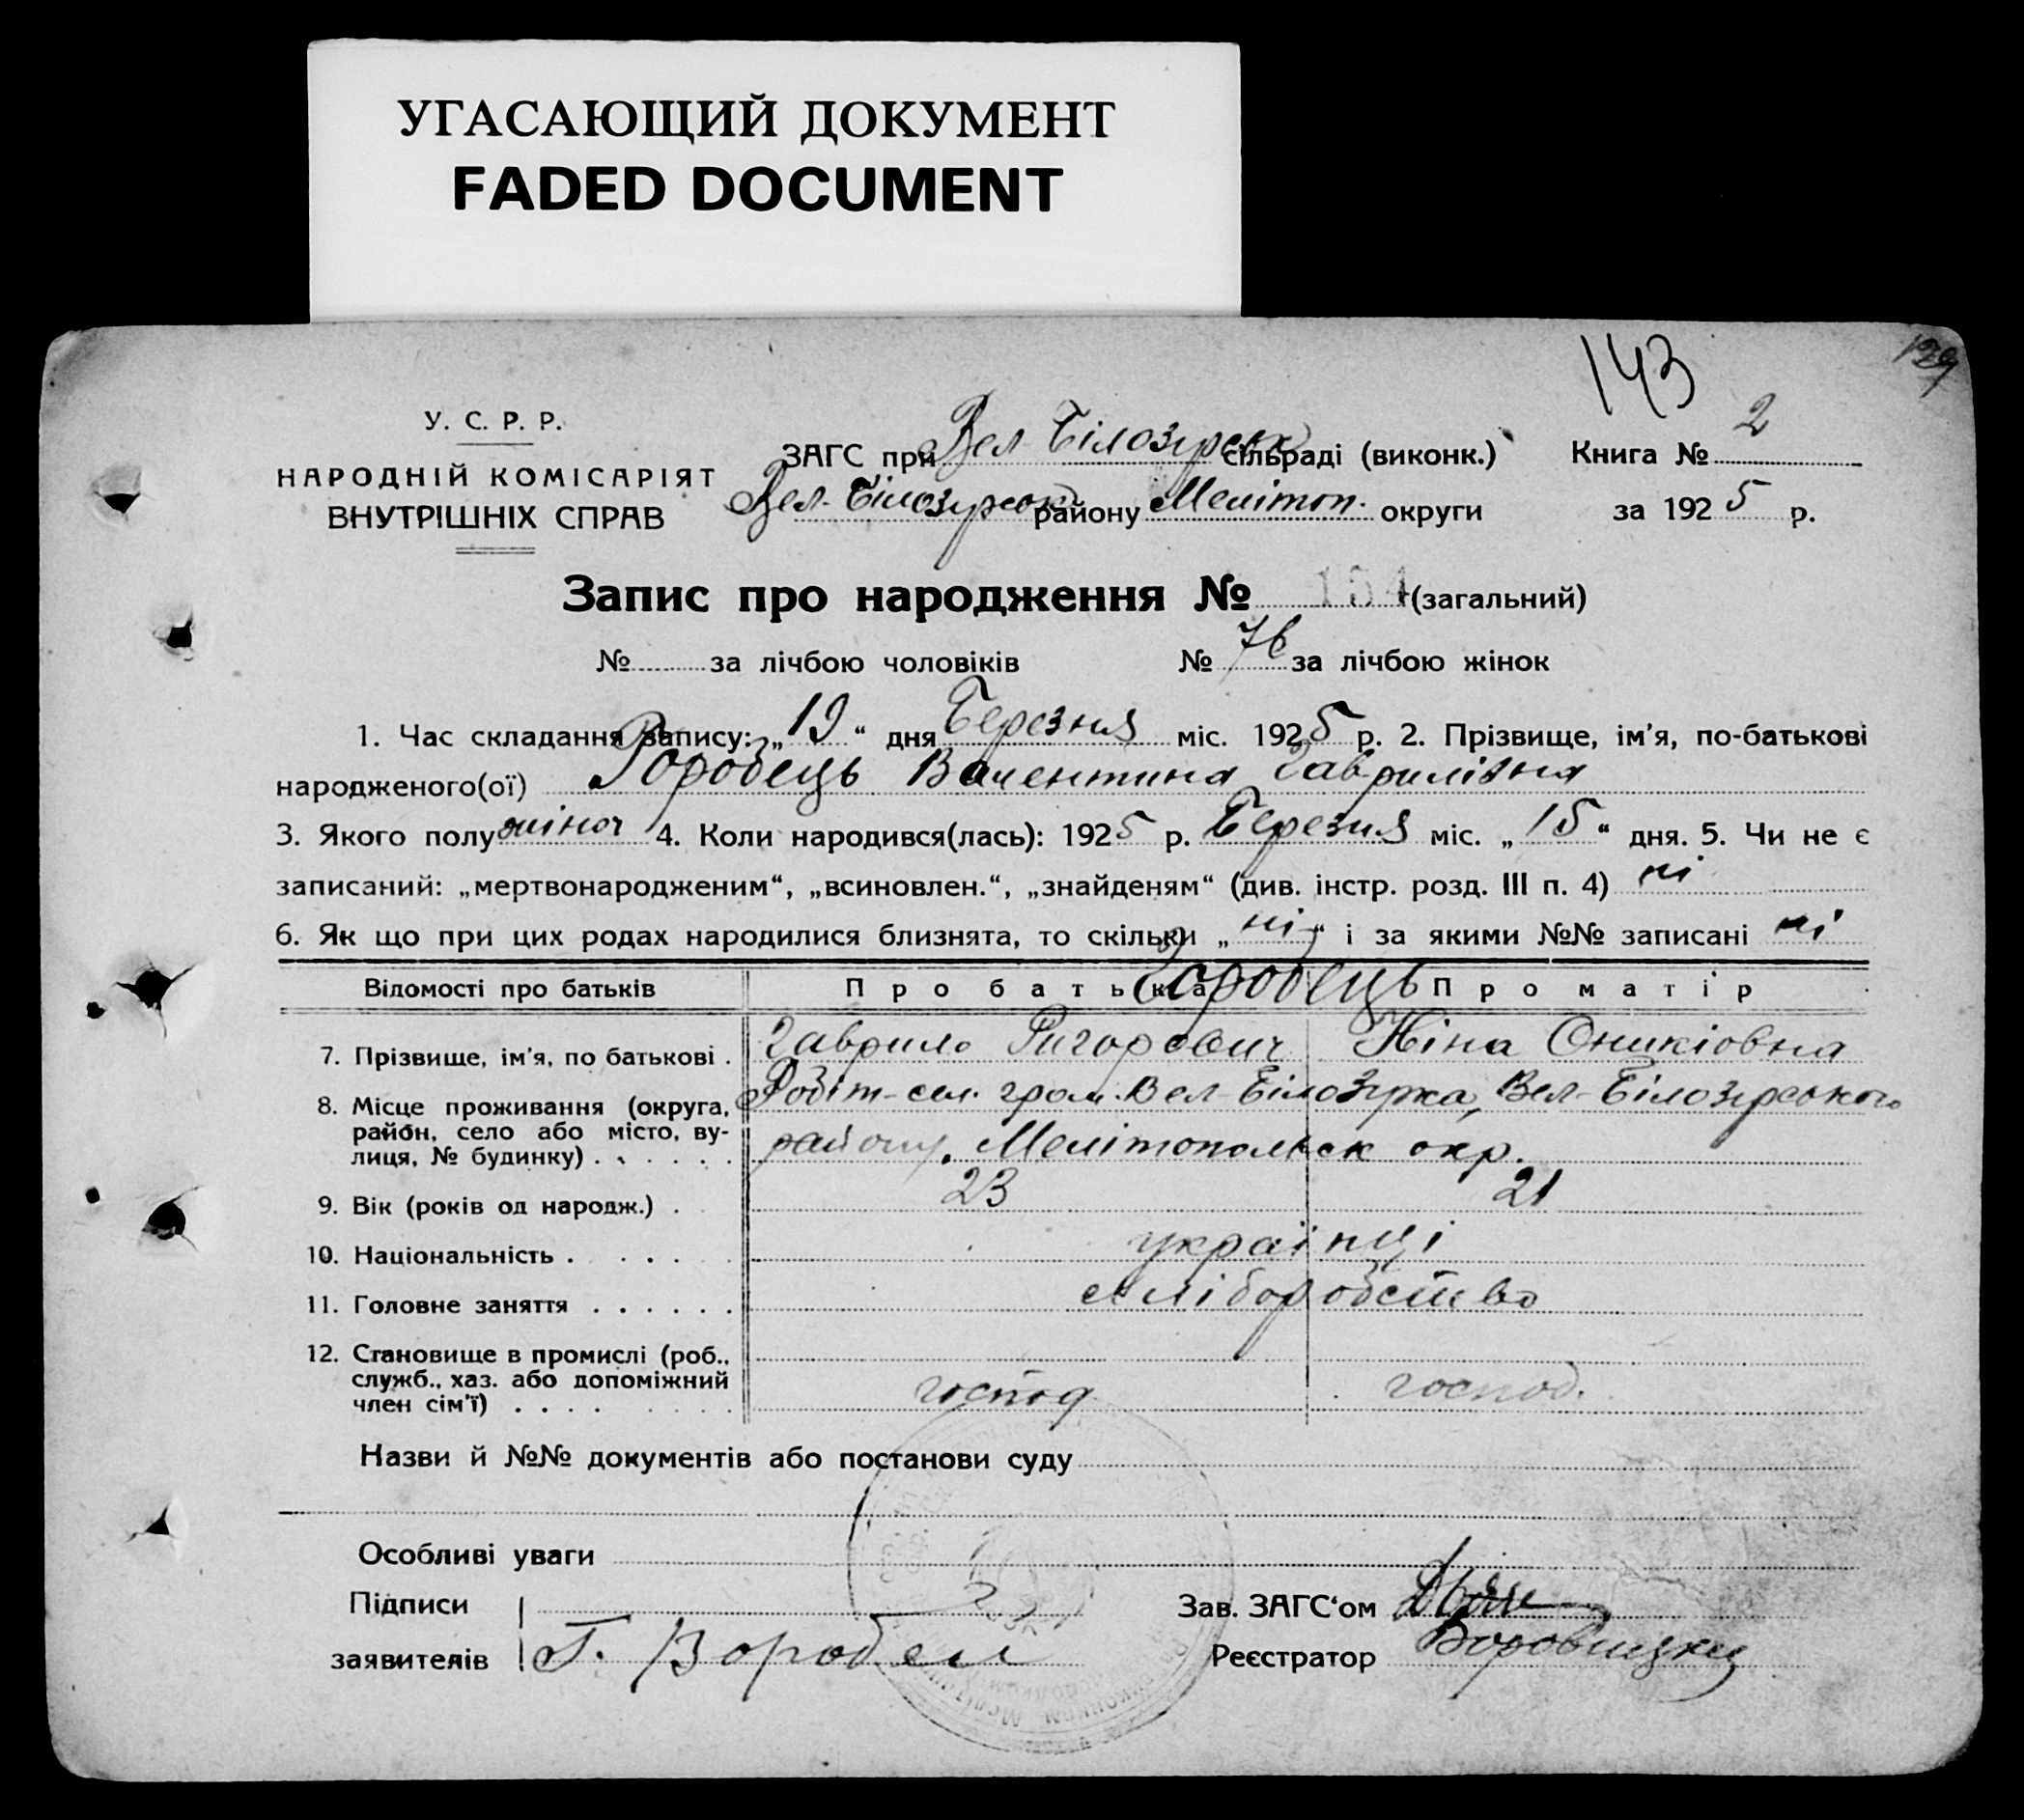 УГАСАЮЩИЙ ДОКУМЕНТ
FADED DOCUMENT
143
129
У. С. Р. Р.
НАРОДНІЙ КОМІСАРІЯТ
ВНУТРІШНІХ СПРАВ
ЗАГС при Вел-Білозірськ сільраді (виконк.) Книга № 2
Вел-Білозірськ району Мелітоп. округи за 1925 р.
Запис про народження № 154 (загальний)
№ за лічбою чоловіків № 76 за лічбою жінок
1. Час складання запису: „19“ дня Березня міс. 1925 р. 2. Прізвище, ім'я, по-батькові
народженого(ої) Воробець Валентина Гаврилівна
3. Якого полу жіноч 4. Коли народився(лась): 1925 р. Березня міс. „15“ дня. 5. Чи не є
записаний: „мертвонародженим“, „всиновлен.“, „знайденям“ (див. інстр. розд. III п. 4) ні
6. Як що при цих родах народилися близнята, то скільки „ні“ і за якими №№ записані ні
Відомості про батьків Про батька Про матір
Воробець
7. Прізвище, ім'я, по батькові . Гаврило Григорович Ніна Оникіовна
8. Місце проживання (округа, Робіт-сел. гром. Вел-Білозірка, Вел-Білозірського
район, село або місто, ву-
лиця, № будинку) . . . . . . району, Мелітопольск окр.
9. Вік (років од народж.) . 23 21
10. Національність . . . . . українці
11. Головне заняття . . . . . . хліборобство
12. Становище в промислі (роб.,
служб., хаз. або допоміжний
член сім'ї) . . . . господ господ.
Назви й №№ документів або постанови суду
Особливі уваги
Підписи
заявителів Г. Воробец
Зав. ЗАГС‘ом
Реєстратор